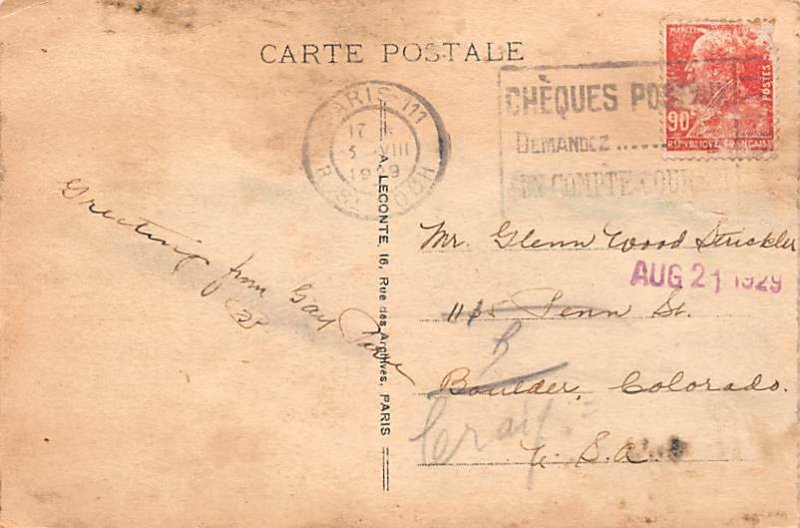 CARTE POSTALE
MARCELIN
90c
POSTES
REPUBLIQUE FRANÇAISE
CHÈQUES POSTAUX
DEMANDEZ ......
UN COMPTE COURANT
PARIS III
17
5 VIII
19 9
R. St
A. LECONTE, 16, Rue des Archives, PARIS
Greeting
from Gay
Paree
Mr. Glenn Wood Strickler
AUG 21 1929
1135 Penn St.
Boulder, Colorado.
Craig
U. S. A.